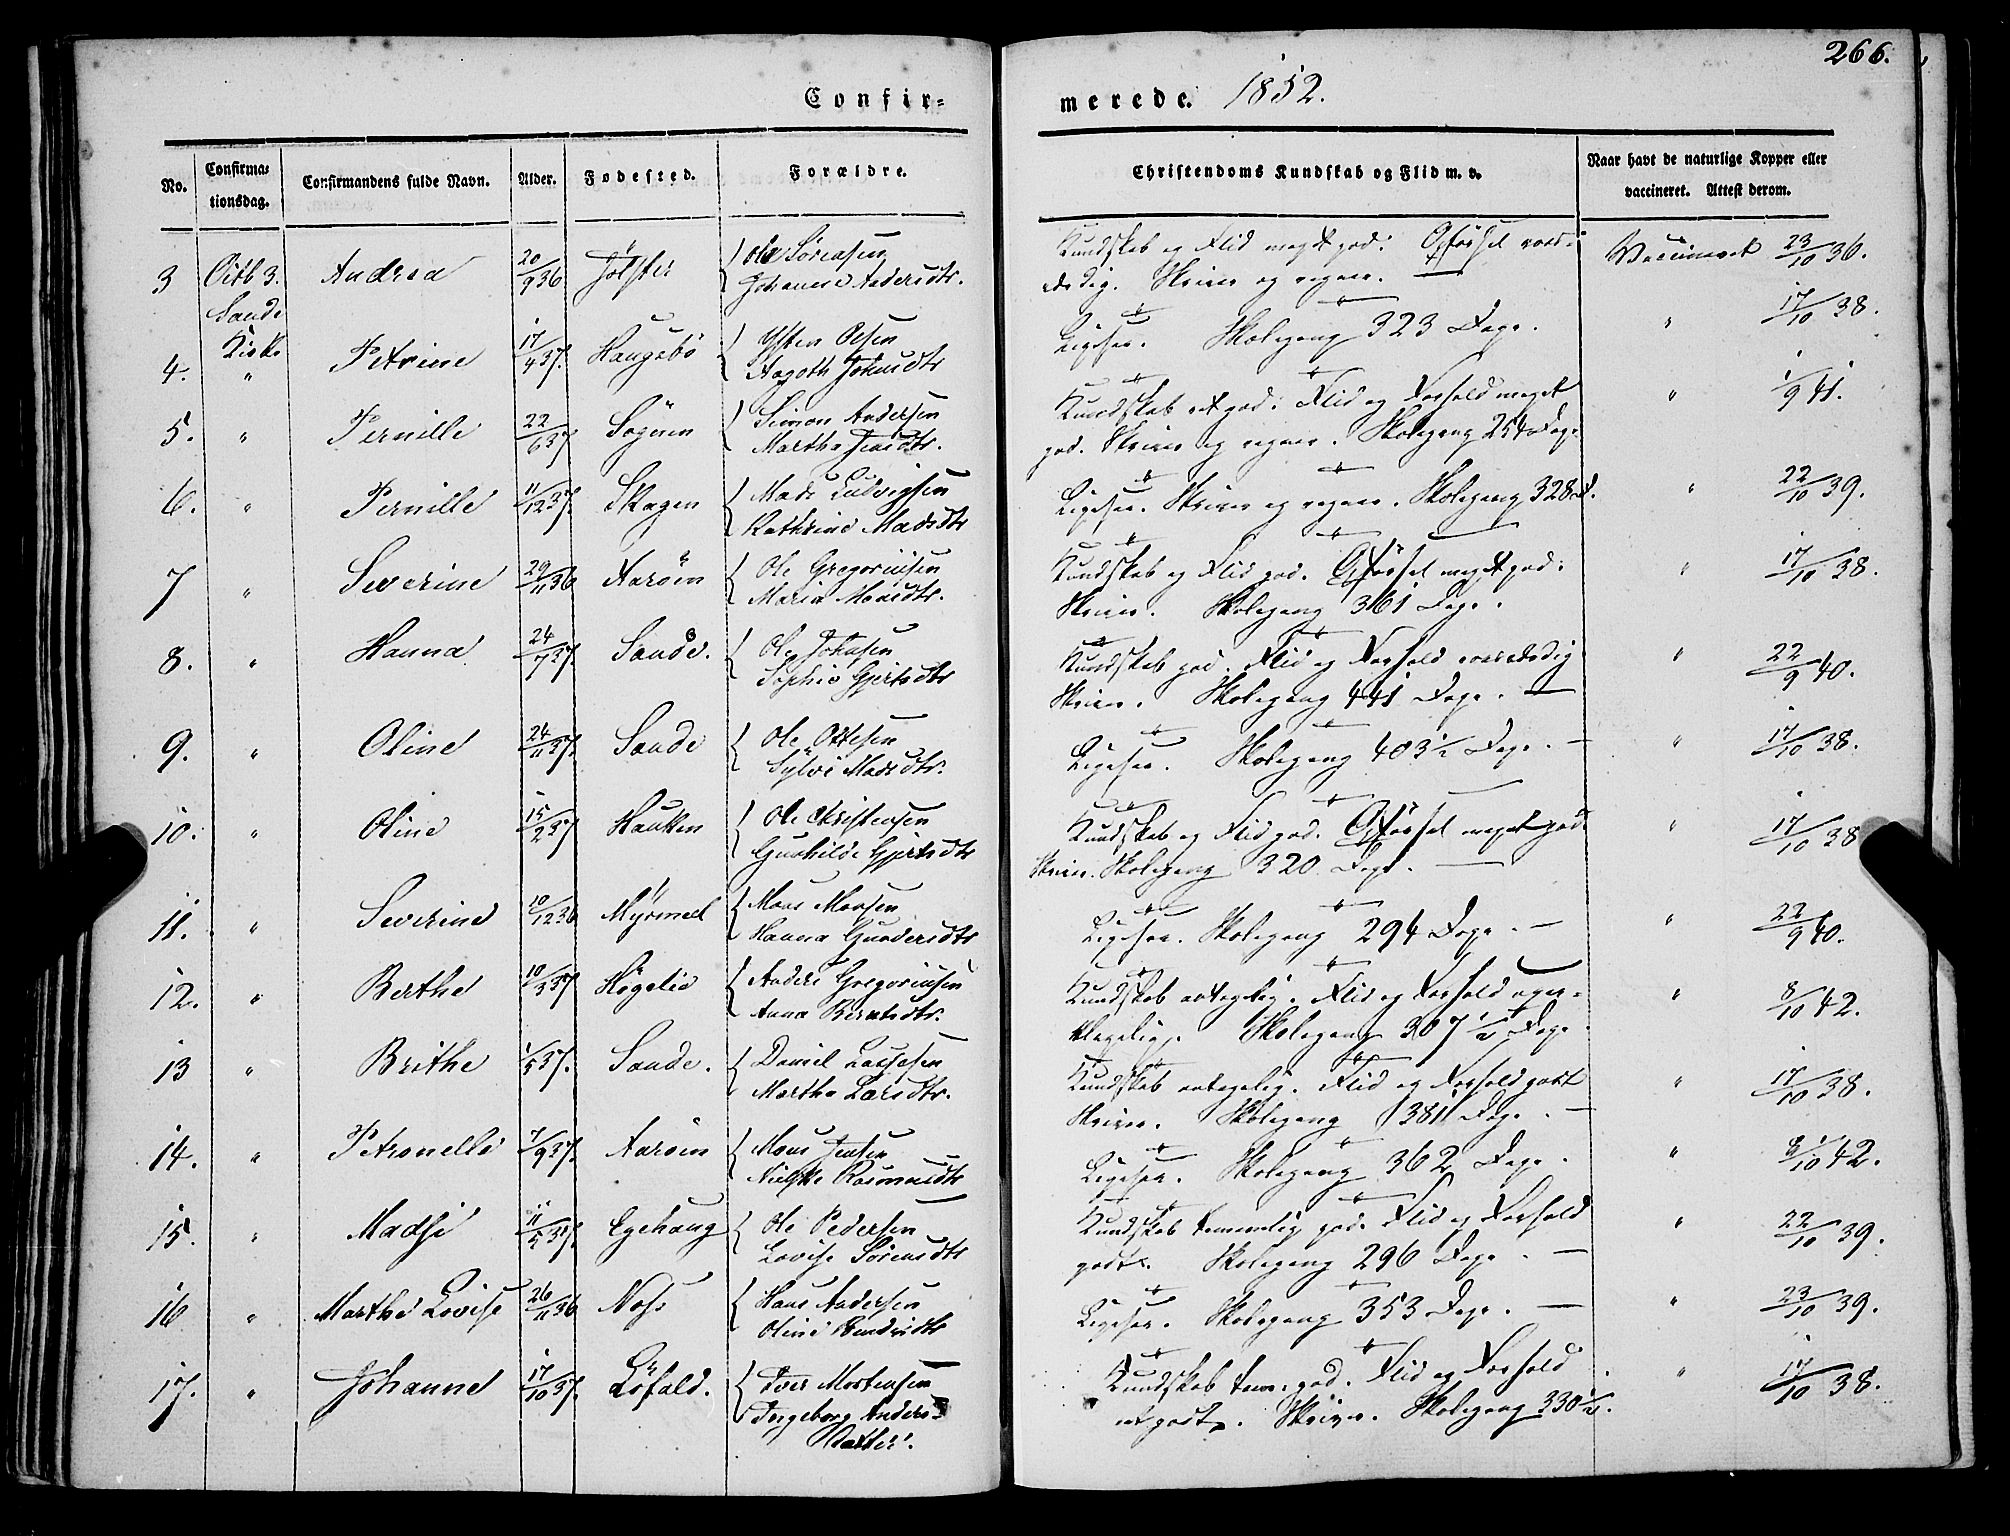 266.
Confir-
merede. 1852.
No. Confirma-tionsdag. Confirmandens fulde Navn. Alder. Fødested. Forældre. Christendoms Kundskab og Flid m. v. Naar havt de naturlige Kopper eller vaccineret. Attest derom.
3 Octb 3. Andrea 20/9 36 Jölster Ole Sörensen Kundskab og Flid meget god. Opförsel roes-
Sande Johanne Andersdtr. værdig. Skriver og regner. Vaccineret 23/10 36.
Kirke
4. " Petrine 17/4 37. Haugebö Ysten Olsen Ligesaa. Skolegang 323 Dage. " 17/10 38.
Aagoth Johnsdtr
5. " Pernille 22/6 37 Sögnen Simon Andersen Kundskab ret god. Flid og Forhold meget " 1/9 41.
Martha Jensdtr. god. Skriver og regner. Skolegang 254 Dage
6. " Pernille 11/12 37. Skagen Mads Ludvigsen Ligesaa. Skriver og regner. Skolegang 328 D. " 22/10 39.
Kathrine Madsdtr
7 " Severine 29/11 36 Aaröen Ole Gregoriusen Kundskab og Flid god. Opförsel meget god. " 17/10 38.
Maria Monsdtr. Skriver. Skolegang 361 Dage.
8. " Hanna 24/7 37. Sande. Ole Johnsen Kundskab god. Flid og Forhold roesværdig " 22/9 40.
Sophie Gjertsdtr Skriver. Skolegang 441 Dage.
9. " Oline 24/11 37. Sande Ole Ottesen Ligesaa. Skolegang 403 1/2 Dage. " 17/10 38.
Sylvi Madsdtr.
10. " Oline 15/2 37 Hauken Ole Christensen Kundskab og Flid god. Opförsel meget god. " 17/10 38
Gunhilde Gjertsdtr Skriver. Skolegang 320 Dage.
11. " Severine 10/12 36 Myrmel Mons Monsen Ligesaa. Skolegang 294 Dage. " 22/9 40.
Hanna Gundersdtr
12. " Berthe 10/3 37 Högelie Anders Gregoriusen Kundskab antagelig. Flid og Forhold upaa-
Anna Berntsdtr. klagelig. Skolegang 307 1/2 Dage " 8/10 42.
13 " Brithe 1/5 37. Sande. Daniel Lassesen Kundskab antagelig. Flid og Forhold godt " 17/10 38.
Martha Larsdtr. Skriver. Skolegang 381 Dage.
14. " Petronelle 7/9 37. Aaröen Mons Jensen Ligesaa. Skolegang 362 Dage. " 8/10 42.
Rasmusdtr
15. " Madsi 11/5 37. Egehaug Ole Pedersen Kundskab temmelig god. Flid og Forhold " 22/10 39.
Lovise Sörensdtr godt. Skolegang 296 Dage.
16 " Marthe Lovise 26/11 36 Hans Andersen Ligesaa. Skolegang 353 Dage. " 23/10 39.
Oline
17. " Johanne 17/10 37. Löfald. Iver Mortensen Kundskab tem. god. Flid og Forhold " 17/10 38.
Ingeborg Anders- ret godt. Skriver. Skolegang 330 1/2.
Datter.